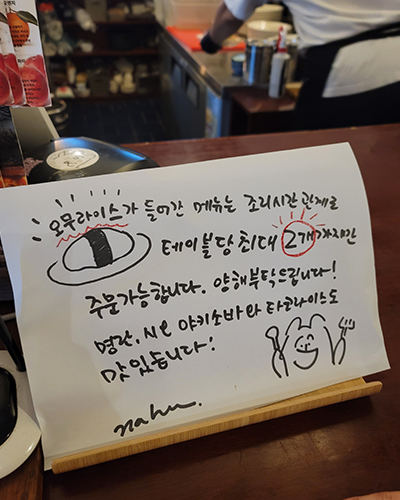 오므라이스가 들어간 메뉴는 조리시간 관계로
테이블당 최대 2개까지만
주문가능합니다. 양해부탁드립니다!
명란, 시오 야키소바와 타코라이스도
맛있습니다!
nahu.